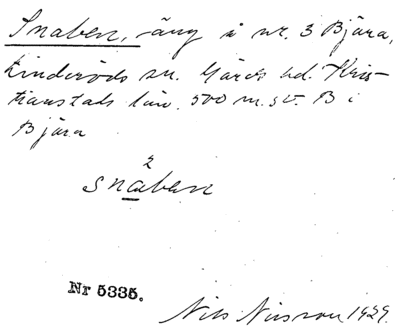 Snaben, äng å nr. 3 Bjära,
Linderöds sn. Gärds hd. Kris-
tianstads län. 500 m. sv. B i
Bjära
2
snaben
Nr 5335.
Nils Nilsson 1929.